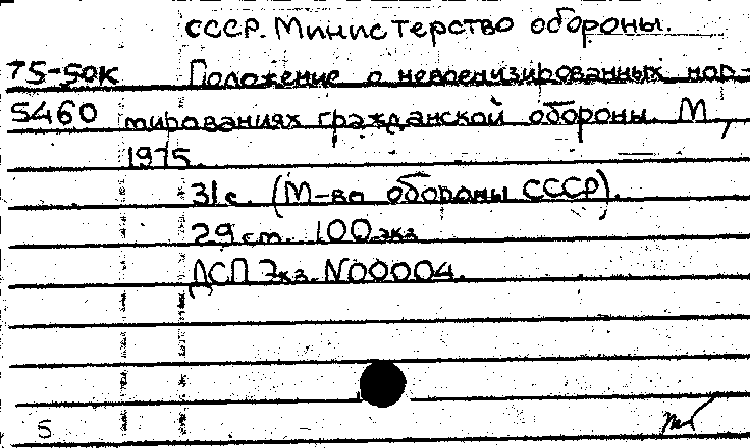 СССР. Министерство обороны.
75-50к Положение о невоенизированных нор-
5460 мированиях гражданской обороны. М.,
1975.
31с. (М-во обороны СССР).
29 cm. 100 экз
ДСП Экз. N00004.
5